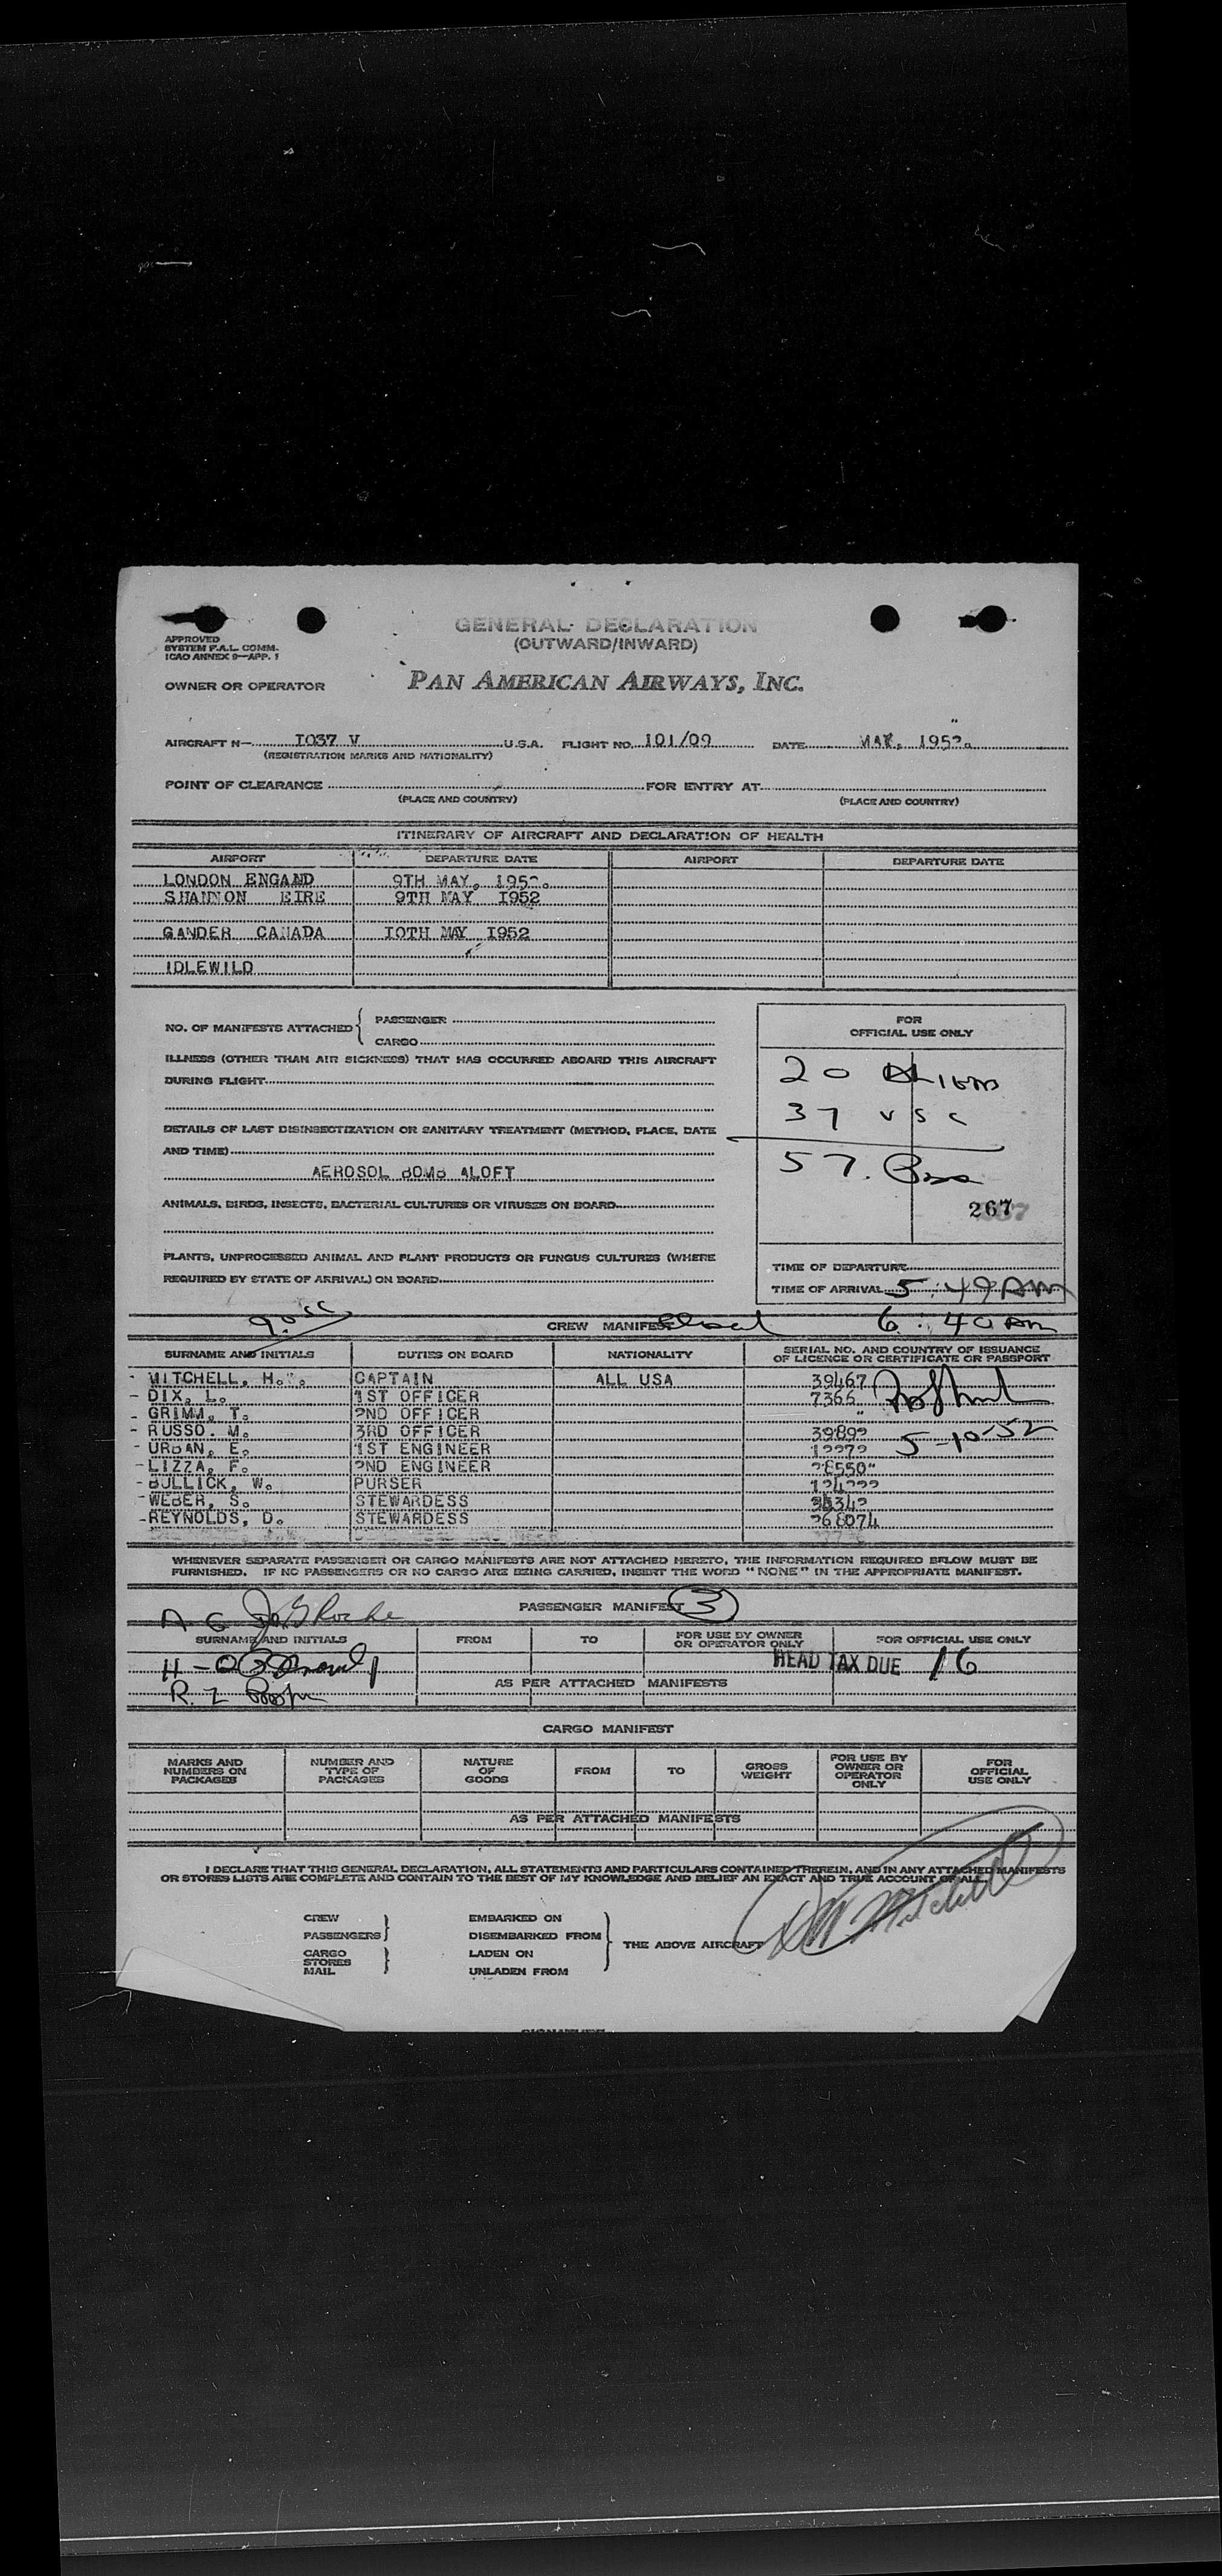 GENERAL DECLARATION
(OUTWARD/INWARD)
APPROVED
SYSTEM F.A.L. COMM.
ICAO ANNEX 9—APP. 1
OWNER OR OPERATOR PAN AMERICAN AIRWAYS, INC.
AIRCRAFT N— 1037 V U.S.A. FLIGHT NO. 101/09 DATE MAY, 1952.
(REGISTRATION MARKS AND NATIONALITY)
POINT OF CLEARANCE FOR ENTRY AT
(PLACE AND COUNTRY) (PLACE AND COUNTRY)
ITINERARY OF AIRCRAFT AND DECLARATION OF HEALTH
AIRPORT DEPARTURE DATE AIRPORT DEPARTURE DATE
LONDON ENGAND 9TH MAY, 1952.
SHANNON EIRE 9TH MAY 1952
GANDER CANADA 10TH MAY 1952
IDLEWILD
NO. OF MANIFESTS ATTACHED { PASSENGER
CARGO
ILLNESS (OTHER THAN AIR SICKNESS) THAT HAS OCCURRED ABOARD THIS AIRCRAFT
DURING FLIGHT
DETAILS OF LAST DISINSECTIZATION OR SANITARY TREATMENT (METHOD, PLACE, DATE
AND TIME)
AEROSOL BOMB ALOFT
ANIMALS, BIRDS, INSECTS, BACTERIAL CULTURES OR VIRUSES ON BOARD
PLANTS, UNPROCESSED ANIMAL AND PLANT PRODUCTS OR FUNGUS CULTURES (WHERE
REQUIRED BY STATE OF ARRIVAL) ON BOARD
FOR
OFFICIAL USE ONLY
20 Aliens
37 USC
57.
267
TIME OF DEPARTURE
TIME OF ARRIVAL 5:49 AM
CREW MANIFEST 6:40 AM
SURNAME AND INITIALS DUTIES ON BOARD NATIONALITY SERIAL NO. AND COUNTRY OF ISSUANCE
OF LICENCE OR CERTIFICATE OR PASSPORT
- MITCHELL, H. CAPTAIN ALL USA 39467
- DIX, L. 1ST OFFICER 7366
- GRIMM, T. 2ND OFFICER "
- RUSSO. M. 3RD OFFICER 39892 5-10-52
- URBAN, E. 1ST ENGINEER
- LIZZA, F. 2ND ENGINEER
- BULLICK, W. PURSER
- WEBER, S. STEWARDESS
- REYNOLDS, D. STEWARDESS 268074
WHENEVER SEPARATE PASSENGER OR CARGO MANIFESTS ARE NOT ATTACHED HERETO, THE INFORMATION REQUIRED BELOW MUST BE
FURNISHED. IF NO PASSENGERS OR NO CARGO ARE BEING CARRIED, INSERT THE WORD "NONE" IN THE APPROPRIATE MANIFEST.
PASSENGER MANIFEST 3
SURNAME AND INITIALS FROM TO FOR USE BY OWNER
OR OPERATOR ONLY FOR OFFICIAL USE ONLY
HEAD TAX DUE 16
AS PER ATTACHED MANIFESTS
CARGO MANIFEST
MARKS AND
NUMBERS ON
PACKAGES NUMBER AND
TYPE OF
PACKAGES NATURE
OF
GOODS FROM TO GROSS
WEIGHT FOR USE BY
OWNER OR
OPERATOR
ONLY FOR
OFFICIAL
USE ONLY
AS PER ATTACHED MANIFESTS
I DECLARE THAT THIS GENERAL DECLARATION, ALL STATEMENTS AND PARTICULARS CONTAINED THEREIN, AND IN ANY ATTACHED MANIFESTS
OR STORES LISTS ARE COMPLETE AND CONTAIN TO THE BEST OF MY KNOWLEDGE AND BELIEF AN EXACT AND TRUE ACCOUNT OF ALL.
CREW EMBARKED ON
PASSENGERS } DISEMBARKED FROM
THE ABOVE AIRCRAFT
CARGO LADEN ON
STORES }
MAIL UNLADEN FROM